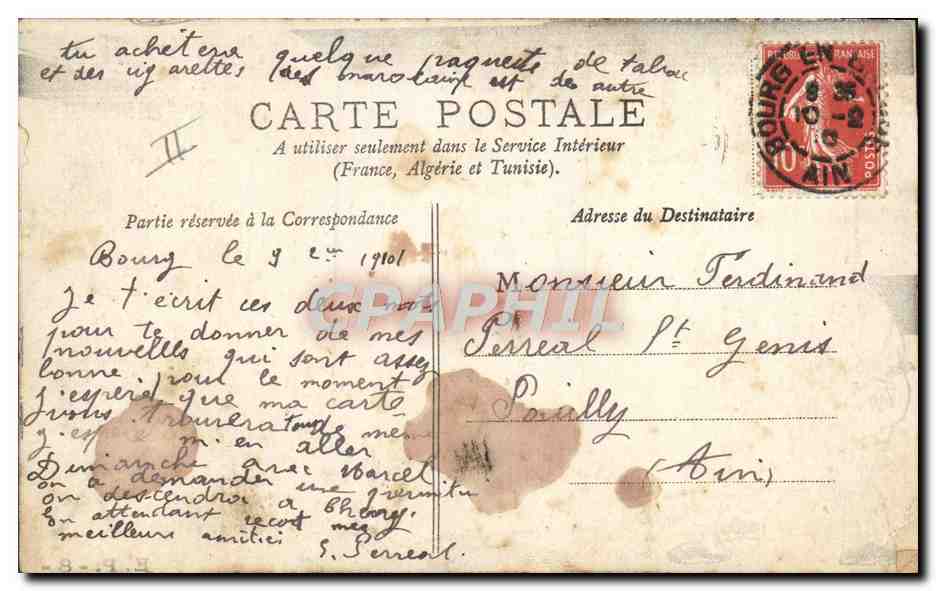 tu achetera quelque paquets de tabac
et des cigarettes des marocaine et de autre
CARTE POSTALE
A utiliser seulement dans le Service Intérieur
(France, Algérie et Tunisie).
II
BOURG-EN-
AIN
FRANÇAISE
POSTES
10
Partie réservée à la Correspondance
Adresse du Destinataire
Bourg le 9 1910
Je t'ecrit ces deux mots
pour te donner de mes
nouvelles qui sont assez
bonne pour le moment
J'espere que ma carte
vous trouvera tous de même
J'espere m'en aller
Dimanche avec Marcel
on a demander une permition
on descendra a
En attendant recoit mes
meilleurs amities
E. Perreal.
Monsieur Ferdinand
Perreal St Genis
Pouilly
(Ain)
CPAPHIL
E.P.-8-